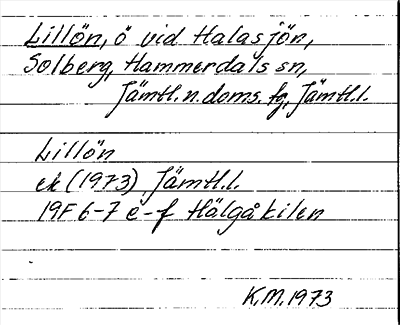 Lillön, ö vid Halasjön,
Solberg, Hammerdals sn,
Jämtl. n. doms. fg, Jämtl.l.
Lillön
ek (1973) Jämtl.l.
19F 6-7 e-f Hälgåkilen
K.M. 1973